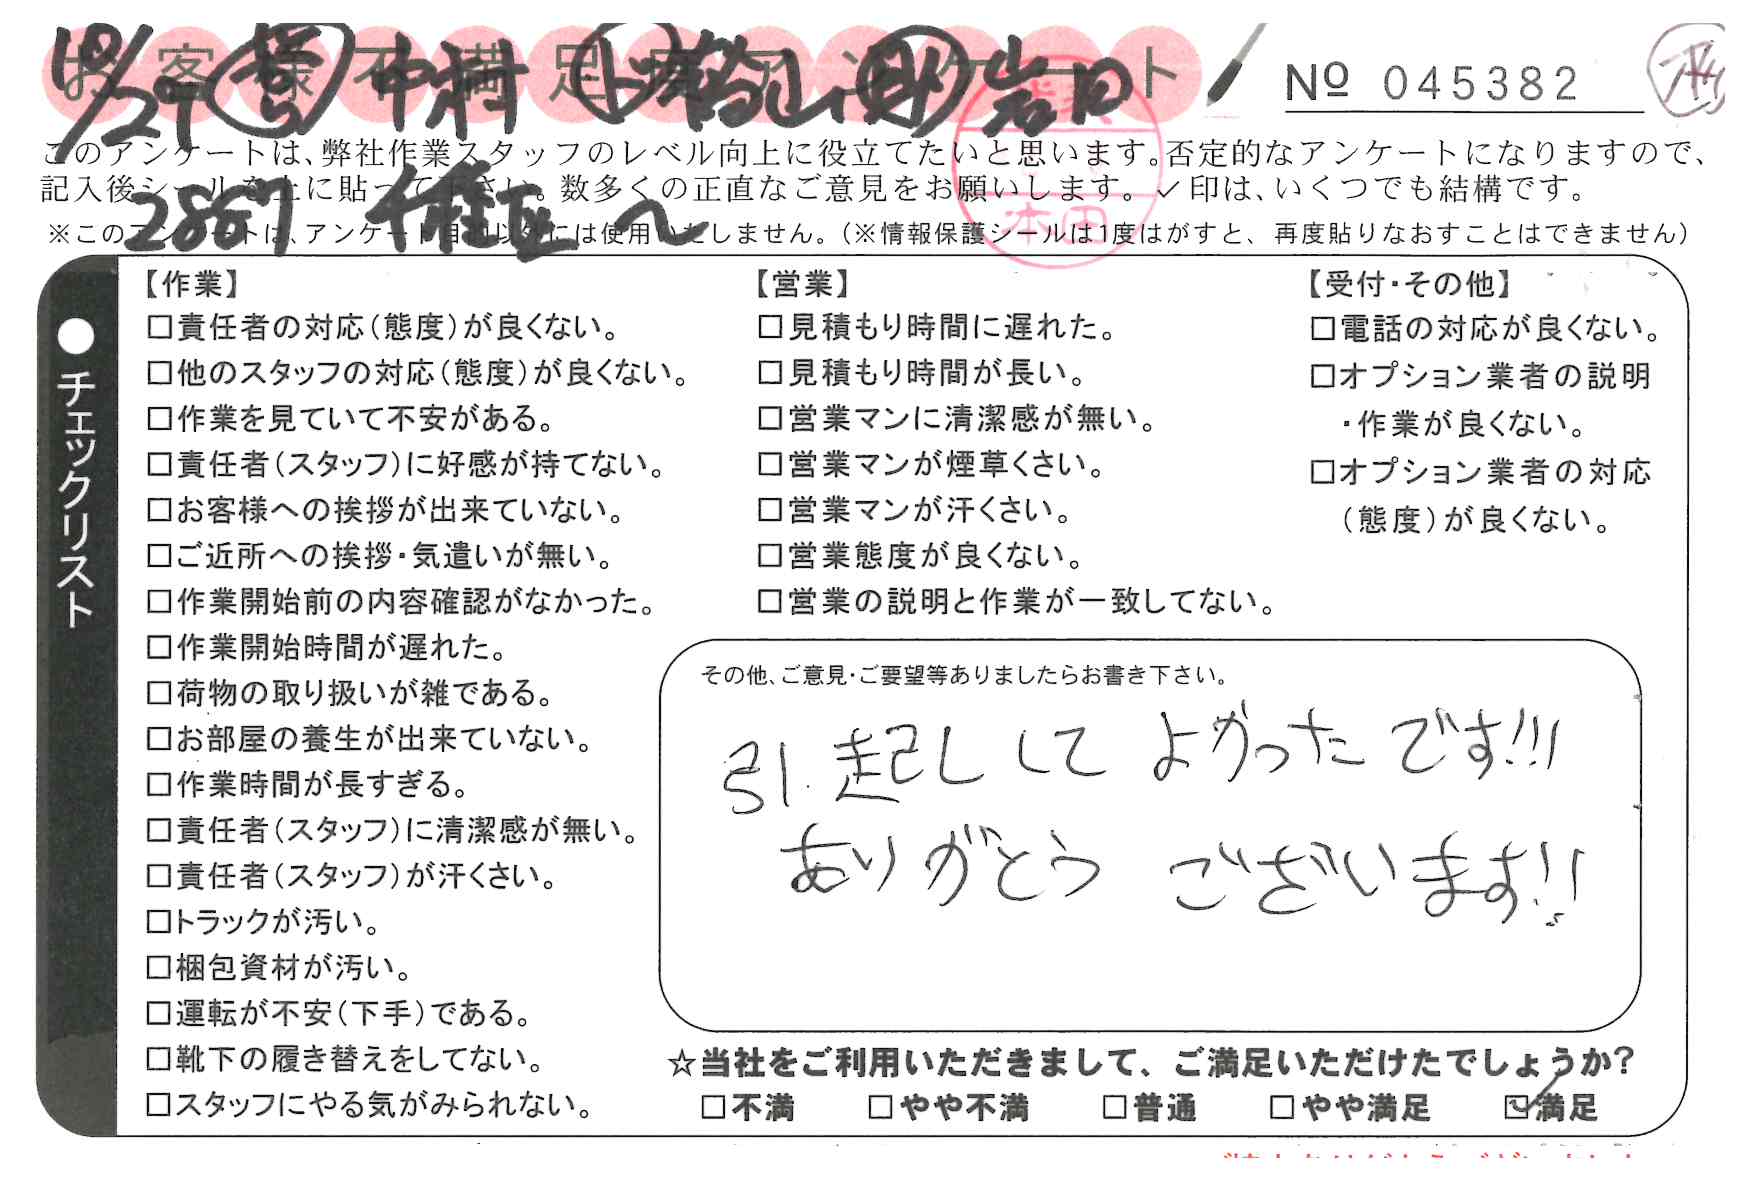 お客様不満足度アンケート
№ 045382
10/29 中村 岩田
このアンケートは、弊社作業スタッフのレベル向上に役立てたいと思います。否定的なアンケートになりますので、
記入後シールを上に貼って下さい。数多くの正直なご意見をお願いします。✓印は、いくつでも結構です。
2887 千種区へ
※このアンケートは、アンケート目的以外には使用いたしません。(※情報保護シールは1度はがすと、再度貼りなおすことはできません)
本田
●チェックリスト
【作業】
□責任者の対応(態度)が良くない。
□他のスタッフの対応(態度)が良くない。
□作業を見ていて不安がある。
□責任者(スタッフ)に好感が持てない。
□お客様への挨拶が出来ていない。
□ご近所への挨拶・気遣いが無い。
□作業開始前の内容確認がなかった。
□作業開始時間が遅れた。
□荷物の取り扱いが雑である。
□お部屋の養生が出来ていない。
□作業時間が長すぎる。
□責任者(スタッフ)に清潔感が無い。
□責任者(スタッフ)が汗くさい。
□トラックが汚い。
□梱包資材が汚い。
□運転が不安(下手)である。
□靴下の履き替えをしてない。
□スタッフにやる気がみられない。
【営業】
□見積もり時間に遅れた。
□見積もり時間が長い。
□営業マンに清潔感が無い。
□営業マンが煙草くさい。
□営業マンが汗くさい。
□営業態度が良くない。
□営業の説明と作業が一致してない。
【受付・その他】
□電話の対応が良くない。
□オプション業者の説明
・作業が良くない。
□オプション業者の対応
(態度)が良くない。
その他、ご意見・ご要望等ありましたらお書き下さい。
引.起し して よかった です!!!
ありがとう ございます!!
☆当社をご利用いただきまして、ご満足いただけたでしょうか?
□不満 □やや不満 □普通 □やや満足 ☑満足